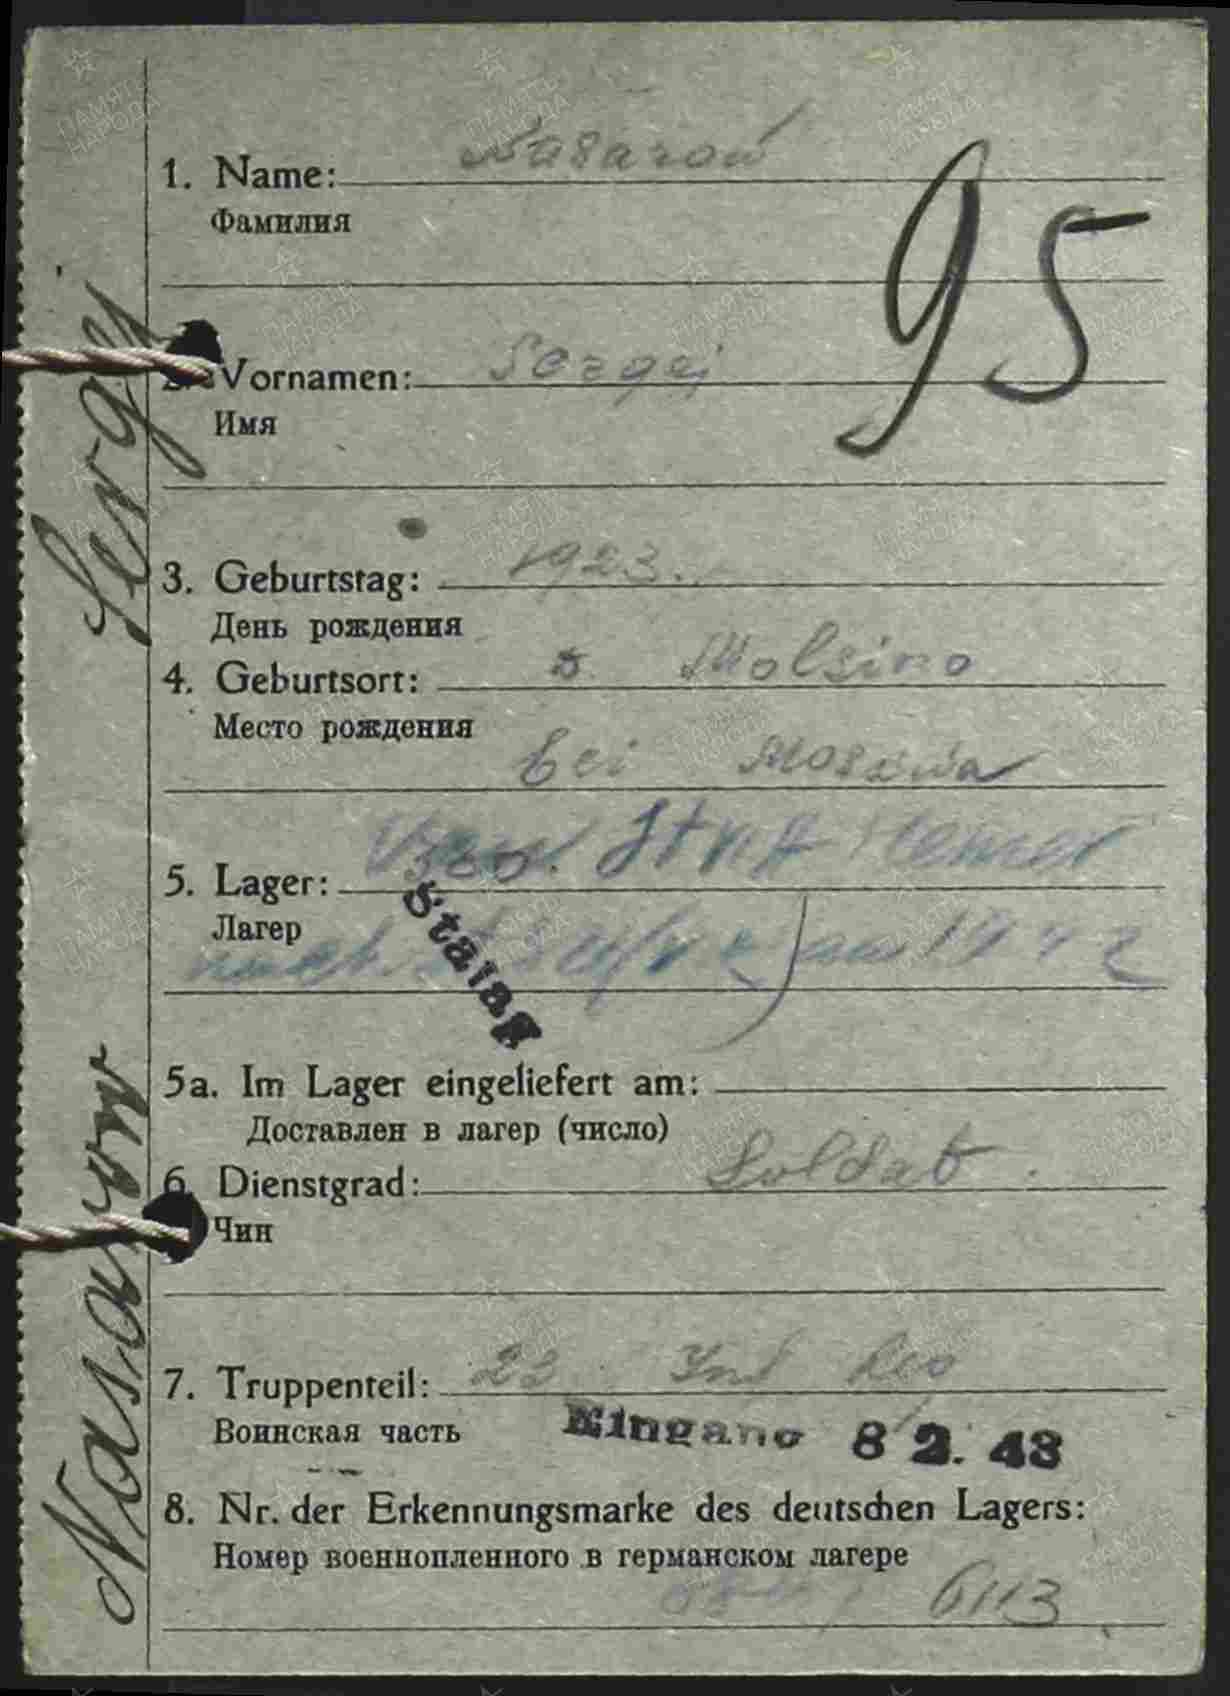 1. Name: Nasarow
Фамилия
95
Vornamen: Sergej
Имя
3. Geburtstag: 1923.
День рождения
4. Geburtsort: Molsino
Место рождения
bei Moskwa
5. Lager: Hemer
Лагер
Stalag
5a. Im Lager eingeliefert am:
Доставлен в лагер (число)
6. Dienstgrad: Soldat.
Чин
7. Truppenteil: 22 Inf Reg
Воинская часть
Eingang 8 2. 43
8. Nr. der Erkennungsmarke des deutschen Lagers:
Номер военнопленного в германском лагере
6113
Nasarow Sergej
ПАМЯТЬ НАРОДА